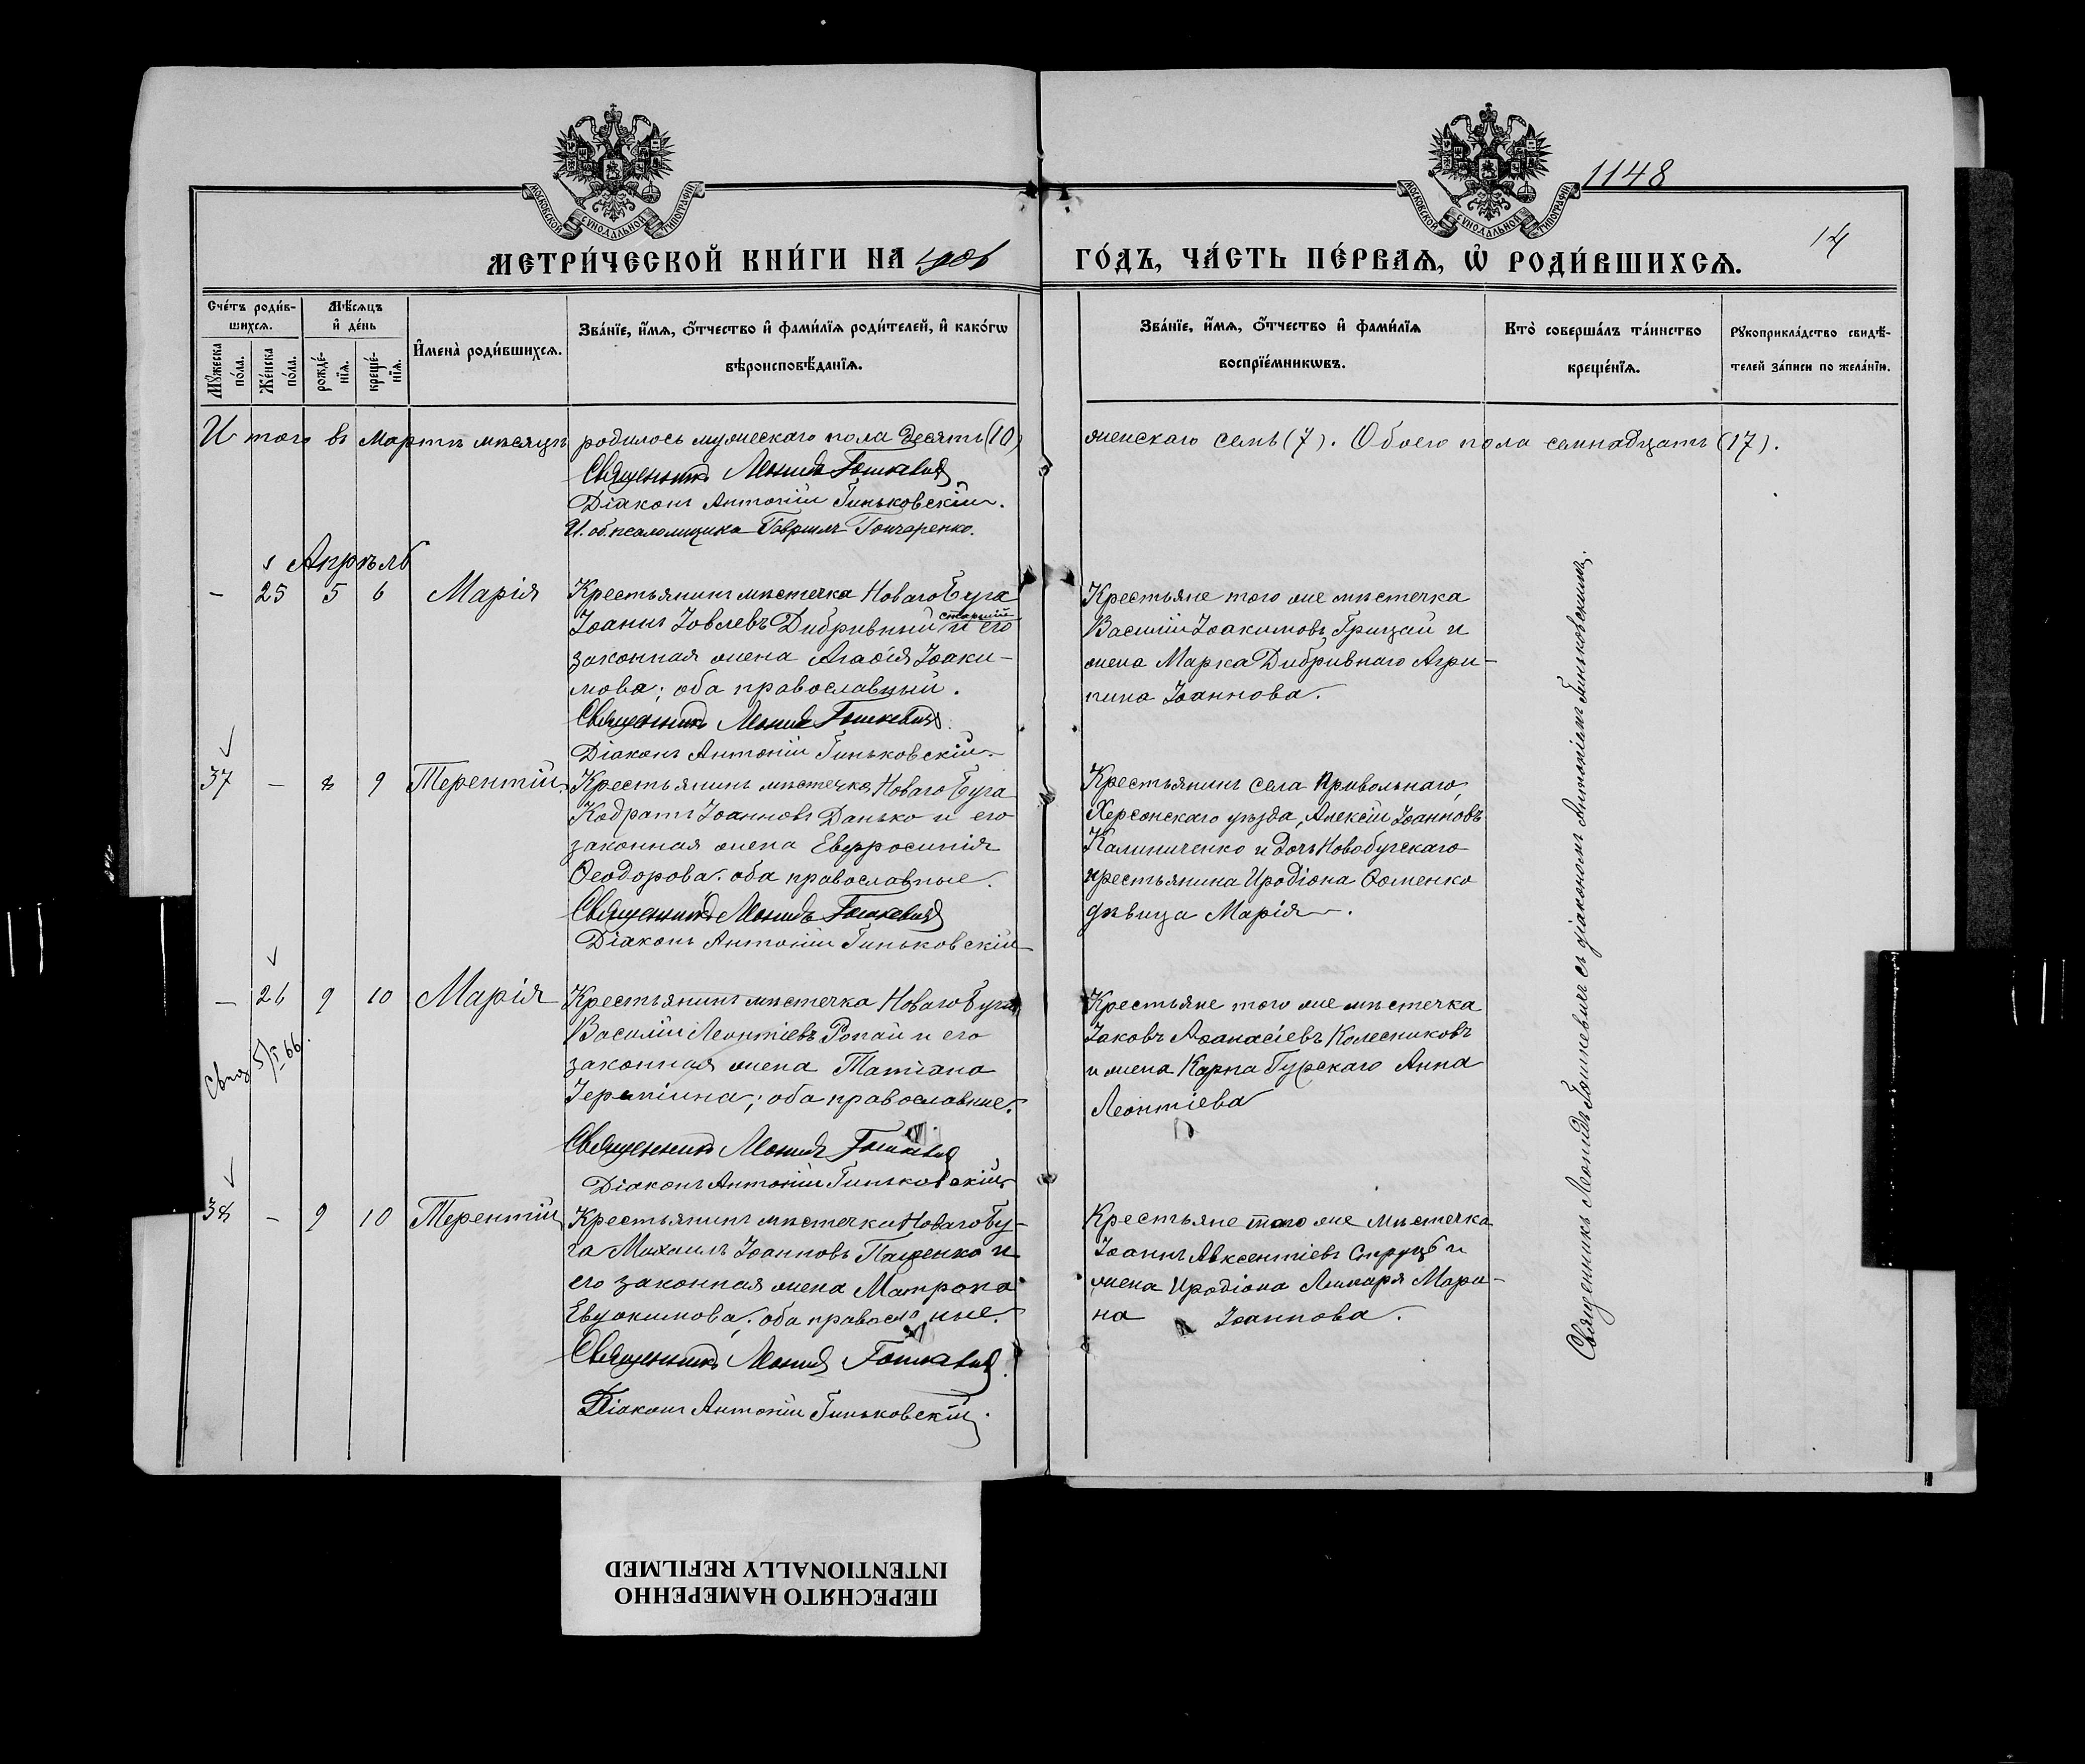 МОСКОВСКОЙ СУНОДАЛЬНОЙ ТИПОГРАФІИ
МОСКОВСКОЙ СУНОДАЛЬНОЙ ТИПОГРАФІИ
1148
14
МЕТРИ́ЧЕСКОЙ КНИ́ГИ НА 1906
ГО́ДЪ, ЧА́СТЬ ПЕ́РВАѦ, Ѡ҆ РОДИ́ВШИХСѦ.
Сче́тъ роди́в-
шихсѧ.
Мꙋ́жеска по́ла.
Же́нска по́ла.
Мѣ́сѧцъ
и҆ де́нь
рожде́-
нїѧ.
креще́-
нїѧ.
И҆мена̀ роди́вшихсѧ.
Зва́нїе, и҆́мѧ, ѻ҆́тчество и҆ фами́лїѧ роди́телей, и҆ како́гѡ
вѣроисповѣ́данїѧ.
Зва́нїе, и҆́мѧ, ѻ҆́тчество и҆ фами́лїѧ
воспрїе́мникѡвъ.
Кто̀ соверша́лъ та́инство
креще́нїѧ.
Рꙋкоприкла́дство свидѣ́-
телей за́писи по жела́нїю.
Итого въ Мартѣ мѣсяцѣ родилось мужескаго пола десять (10)
женскаго семь (7). Обоего пола семнадцать (17).
Священникъ Леонидъ Гошкевичъ
Діаконъ Антоній Гиньковскій.
И. об. псаломщика Гавріилъ Гончаренко.
Апрѣль
- 25 5 6 Марія
Крестьянинъ мѣстечка Новаго Буга
старшій
Іоаннъ Іовлевъ Дибривный и его
законная жена Агаѳія Іоаки-
мова; оба православный.
Священникъ Леонидъ Гошкевичъ
Діаконъ Антоній Гиньковскій
Крестьяне того же мѣстечка
Василій Іоакимовъ Грицай и
жена Марка Дибривнаго Агри-
пина Іоаннова.
37 - 8 9 Терентій
Крестьянинъ мѣстечка Новаго Буга
Кодратъ Іоанновъ Данько и его
законная жена Евфросинія
Ѳеодорова. оба православные.
Священникъ Леонидъ Гошкевичъ
Діаконъ Антоній Гиньковскій
Крестьянинъ села Привольнаго,
Херсонскаго уѣзда, Алексій Іоанновъ
Калиниченко и дочь Новобугскаго
крестьянина Иродіона Ѳоменко
дѣвица Марія.
- 26 9 10 Марія
66.
Крестьянинъ мѣстечка Новаго Буга
Василій Леонтіевъ Ропай и его
законная жена Татіана
оба православные.
Священникъ Леонидъ Гошкевичъ
Діаконъ Антоній Гиньковскій
Крестьяне того же мѣстечка
Іаковъ Аѳанасіевъ Колесниковъ
и жена Карпа Гурскаго Анна
Леонтіева
38 - 9 10 Терентій
Крестьянинъ мѣстечка Новаго Бу-
га Михаилъ Іоанновъ Пащенко и
его законная жена Матрона
Евдокимова; оба православные.
Священникъ Леонидъ Гошкевичъ
Діаконъ Антоній Гиньковскій.
Крестьяне того же мѣстечка
Іоаннъ Авксентіевъ Струцъ и
жена Иродіона Лимаря Мари-
на Іоаннова.
Священникъ Леонидъ Гошкевичъ съ діакономъ Антоніемъ Гиньковскимъ.
ПЕРЕСНЯТО НАМЕРЕННО
INTENTIONALLY REFILMED